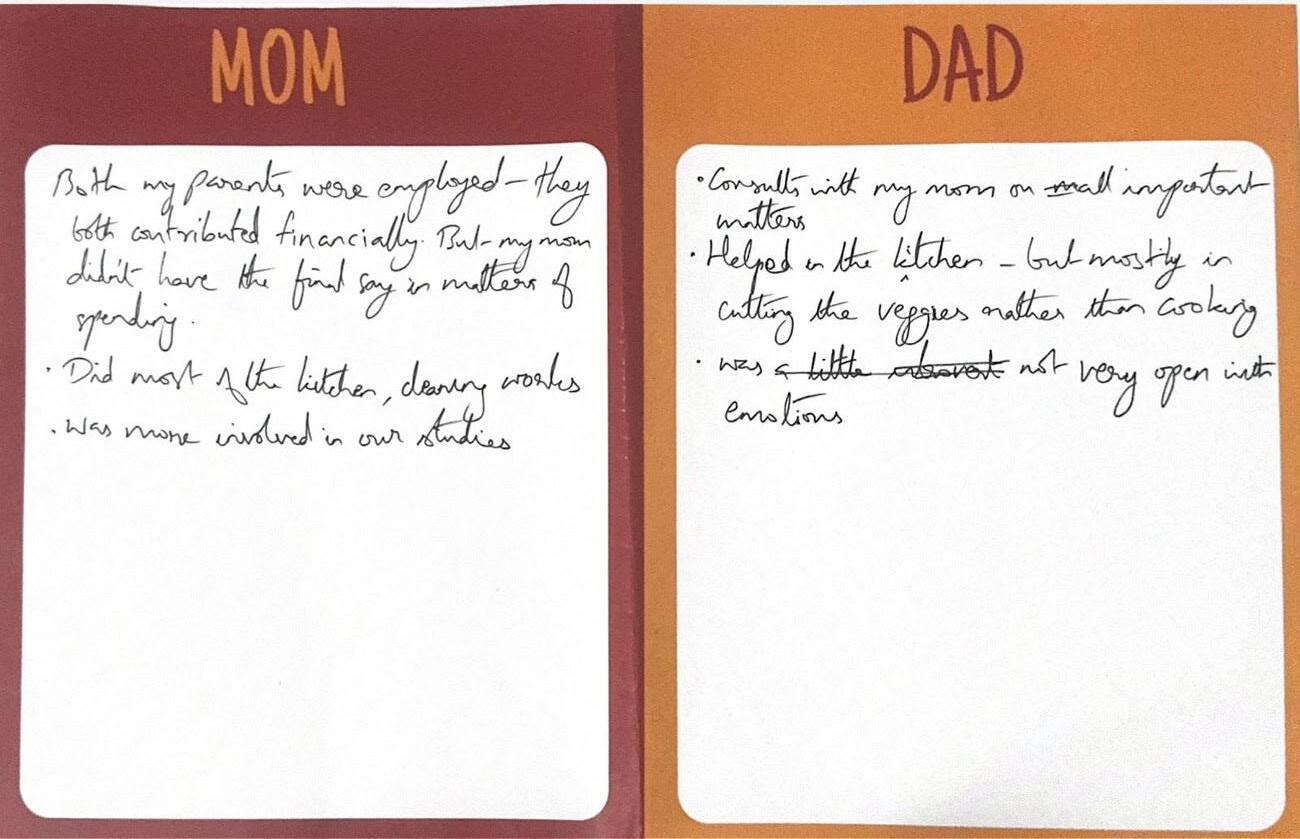 MOM
Both my parents were employed – they
both contributed financially. But my mom
didn't have the final say in matters of
spending.
· Did most of the kitchen, cleaning works
· was more involved in our studies
DAD
· Consults with my mom on all important
matters
· Helped in the kitchen – but mostly in
cutting the veggies rather than cooking
· was a little introvert not very open with
emotions